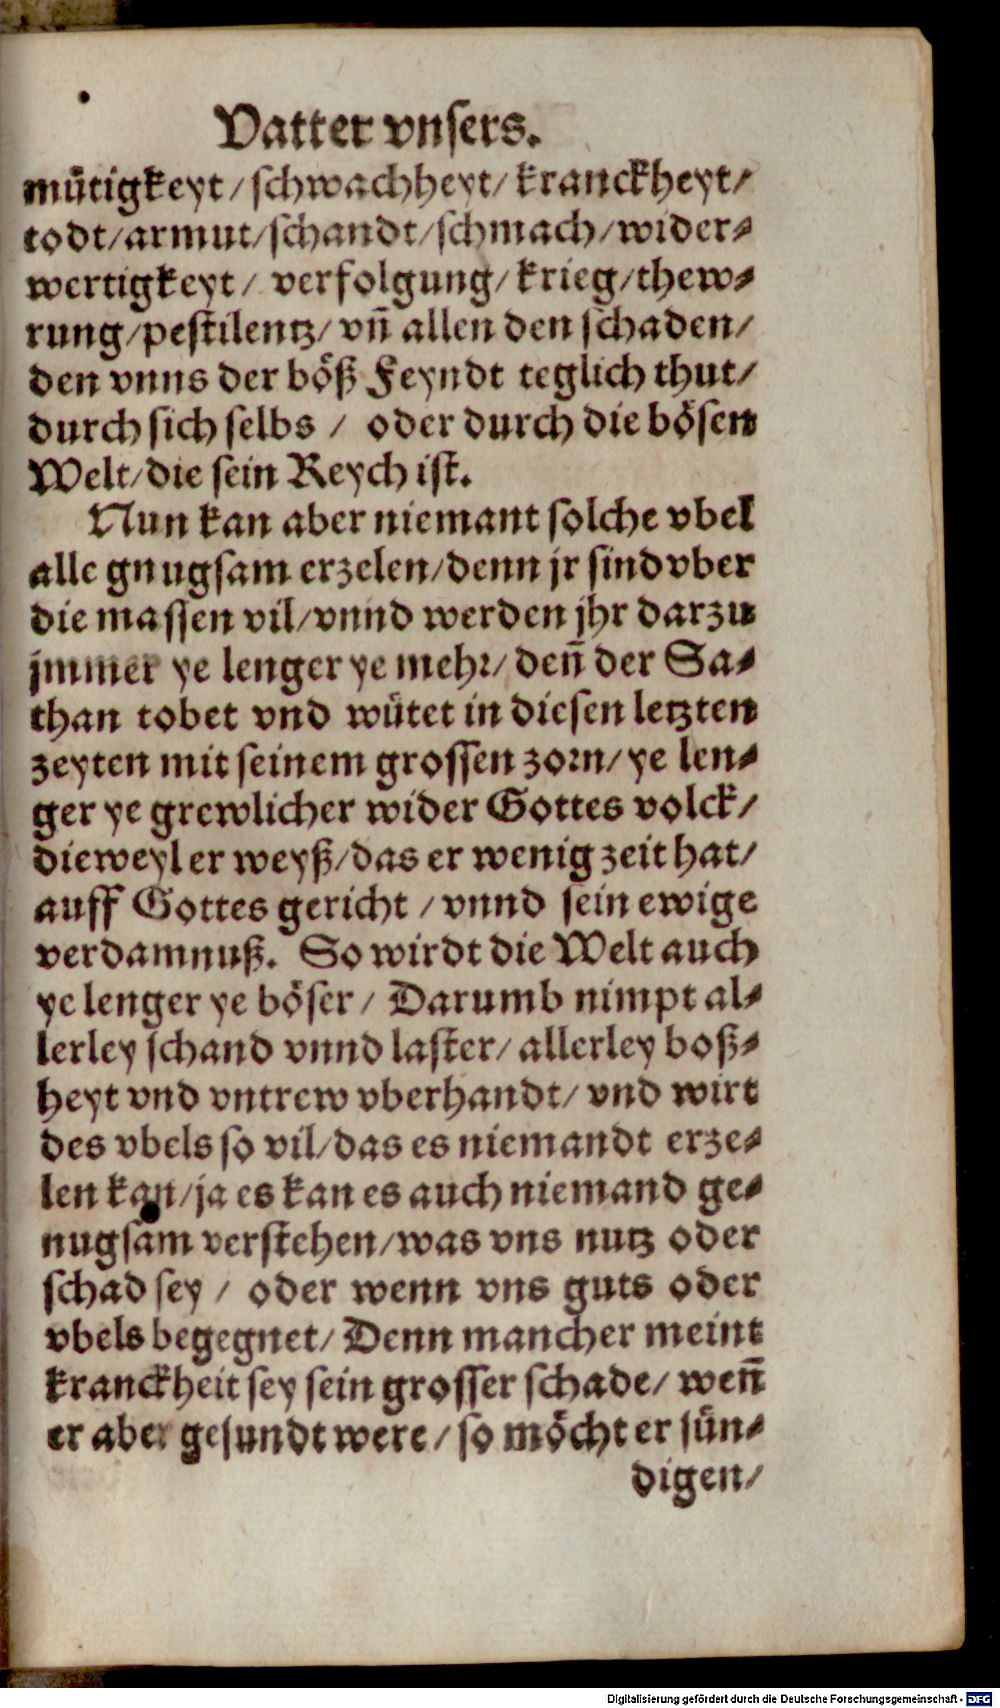 Vatter vnsers.
mütigkeyt / schwachheyt / kranckheyt /
todt / armut / schandt / schmach / wider⸗
wertigkeyt / verfolgung / krieg / thew⸗
rung / pestilentz / vn̄ allen den schaden /
den vnns der böß Feyndt teglich thut /
durch sich selbs / oder durch die bösen
Welt / die sein Reych ist.
Nun kan aber niemant solche vbel
alle gnugsam erzelen / denn jr sind vber
die massen vil / vnnd werden jhr darzu
jmmer ye lenger ye mehr / den̄ der Sa⸗
than tobet vnd wütet in diesen letzten
zeyten mit seinem grossen zorn / ye len⸗
ger ye grewlicher wider Gottes volck /
dieweyl er weyß / das er wenig zeit hat /
auff Gottes gericht / vnnd sein ewige
verdamnuß. So wirdt die Welt auch
ye lenger ye böser / Darumb nimpt al⸗
lerley schand vnnd laster / allerley boß⸗
heyt vnd vntrew vberhandt / vnd wirt
des vbels so vil / das es niemandt erze⸗
len kan / ja es kan es auch niemand ge⸗
nugsam verstehen / was vns nutz oder
schad sey / oder wenn vns guts oder
vbels begegnet / Denn mancher meint
kranckheit sey sein grosser schade / wen̄
er aber gesundt were / so möcht er sün⸗
digen /
Digitalisierung gefördert durch die Deutsche Forschungsgemeinschaft - DFG